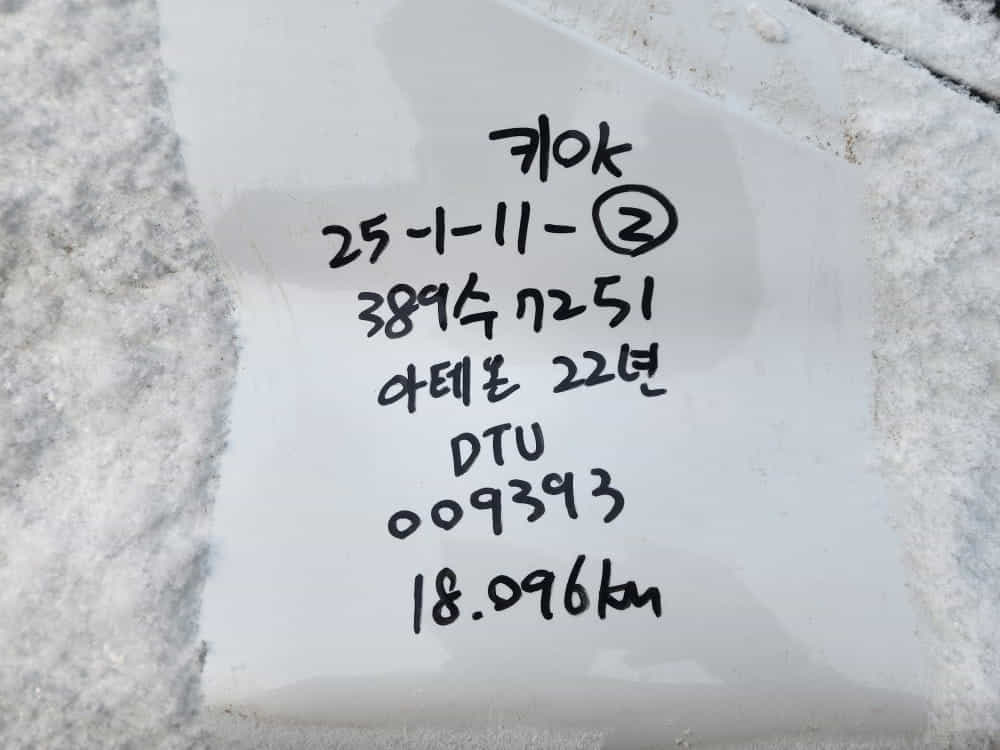 키OK
25-1-11-②
389수7251
아테온 22년
DTU
009393
18.096km